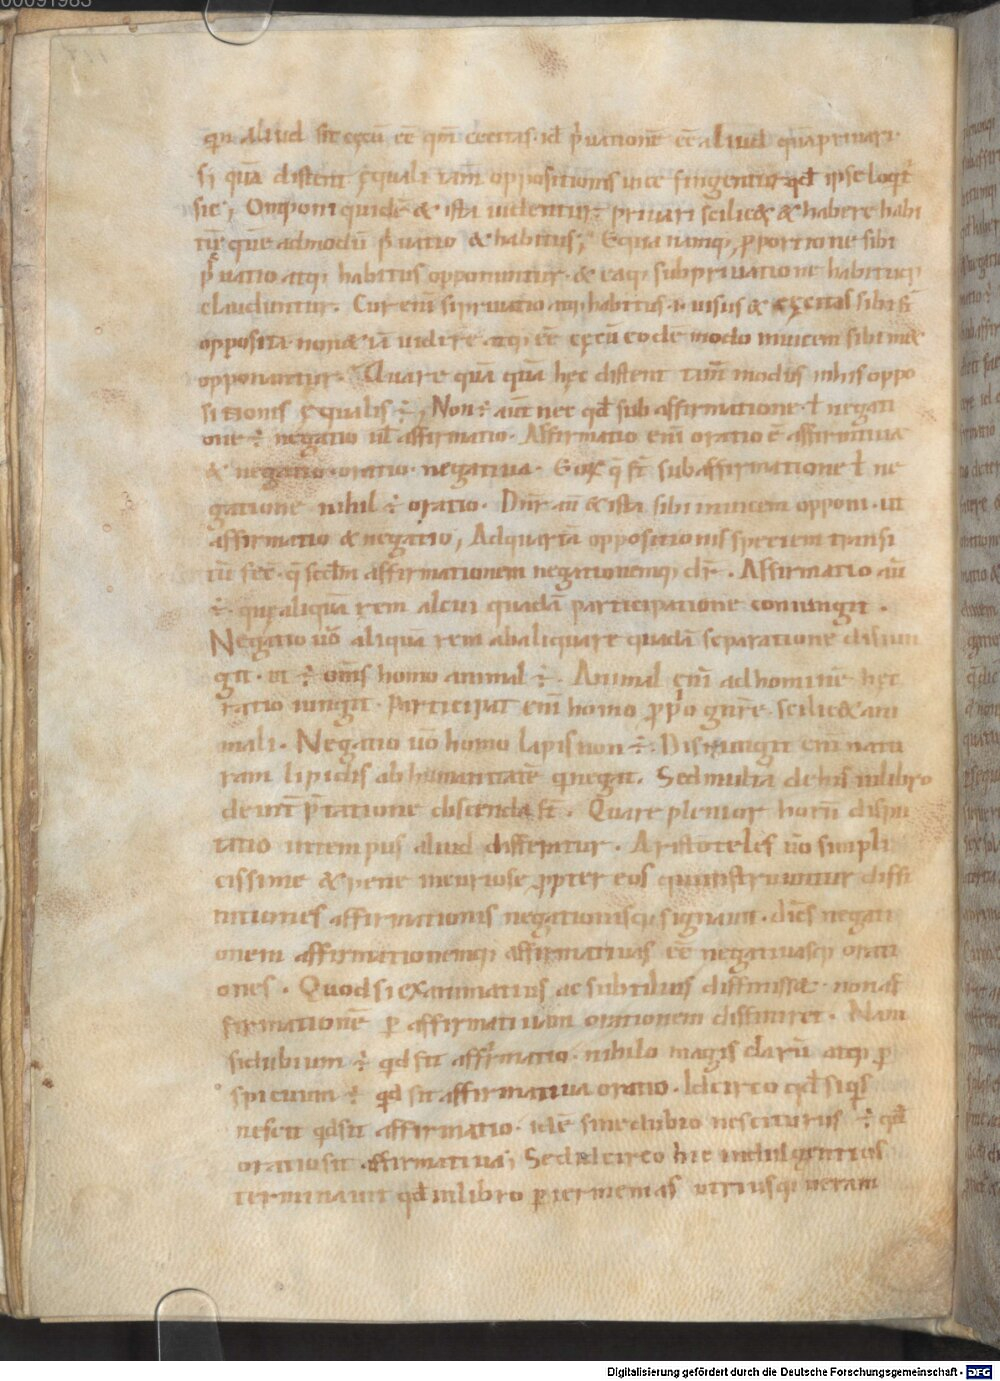 00091983
qm̅ aliud sit cęcu̅ e̅e̅ qm̅ cecitas. id p̅uatione̅ e̅e̅ aliud qua̅ priuari.
si qua̅ distent ęquali tam̅ oppositionis uice fingentur qd̅ ipse loqt̅
sic; Opponi quide̅ & ista uidentur. priuari scilic& & habere habi
tu̅ que̅ admodu̅ p̅uatio & habitus; Equa namq; p̱portione sibi
p̅uatio atq; habitus opponuntur. & eaq; sub priuatione habituq;
clauduntur. Cur eni̅ si priuatio atq; habitus .i. uisus & cęcitas sibi st̅
opposita non & ia̅ uidere atq; e̅e̅ cęcu̅ eode̅ modo inuicem sibim&
opponuntur. Quare qua̅qua̅ hęc distent tam̅ modus in his oppo
sitionis ęqualis ÷; Non ÷ aut̅ nec qd̅ sub affirmatione .ł negati
one ÷ negatio ul̅ affirmatio. Affirmatio eni̅ oratio e̅ affirmatiua
& negatio. oratio negatiua. Eor̅ q̅ st̅ sub affirmatione ł ne
gatione nihil ÷ oratio. Dnr̅ au̅ & ista sibi inuicem opponi. ut
affirmatio & negatio; Ad quarta̅ oppositionis speciem transi
tu̅ fec̅. q̅ scdm̅ affirmationem negationemq; dr̅. Affirmatio au̅
÷. quę aliqua̅ rem alcui quada̅ participatione coniungit.
Negatio uo̅ aliqua̅ rem ab aliqua re quada̅ separatione disiun
git. ut ÷ omis̅ homo animal ÷. Animal eni̅ ad homine̅ hęc
ratio iungit. Participat eni̅ homo p̱p̱o gn̅re. scilic& ani
mali. Negatio uo̅ homo lapis non ÷. Disiungit eni̅ natu
ram lipidis ab humanitate̅ q̅ negat. Sed multa de his in libro
de int̅p̅tatione discenda st̅. Quare plenior horu̅ dispu
tatio in tempus aliud differatur. Aristoteles uo̅ simpli
cissime & pene incuriose p̱pter eos qui instruuntur diffi
nitiones affirmationis negationisq; signauit. dic̅s negati
onem affirmationemq; affirmatiuas e̅e̅ negatiuasq; orati
ones. Quod si examinatius ac subtilius diffinisset. non af
firmatione̅ p̱ affirmatiuam orationem diffiniret. Nam
si dubium ÷ qd̅ sit affirmatio. nihilo magis claru̅ atq; p̱
spicuum ÷ qd̅ sit affirmatiua oratio. Idcirco qd̅ si q̅s
nescit qd̅ sit affirmatio. ide̅ sine dubio nesciturus ÷ qd̅
oratio sit affirmatiua; Sed idcirco hic indulgentius
terminauit qd̅ in libro p̱iermenias utriusq; ueram
Digitalisierung gefördert durch die Deutsche Forschungsgemeinschaft - DFG